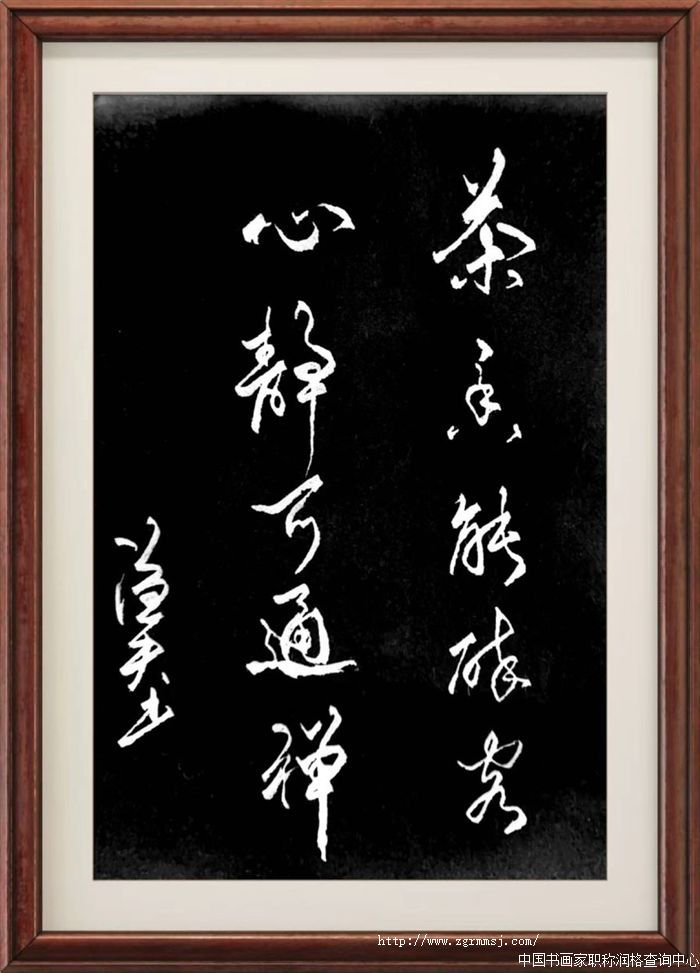 茶香能醉客
心静可通禅
渔夫书
http://www.zgrmmsj.com/
中国书画家职称润格查询中心